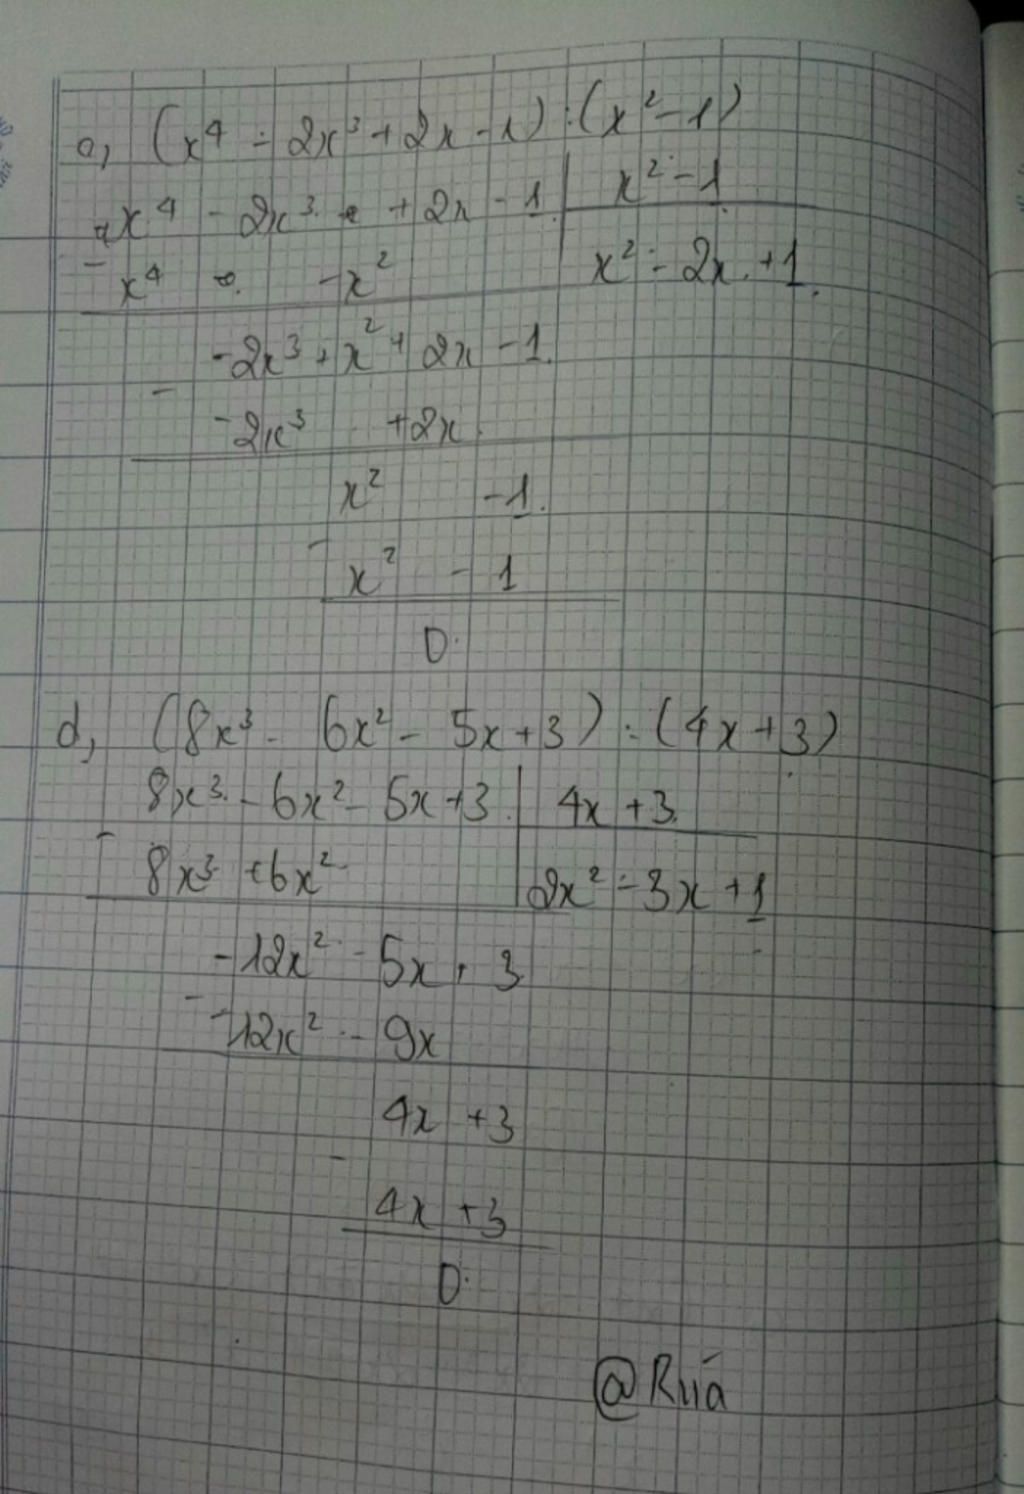 a, (x⁴ - 2x³ + 2x - 1) : (x² - 1)
x⁴ - 2x³ + 2x - 1 | x² - 1
- x⁴ - x² | x² - 2x + 1
-2x³ + x² + 2x - 1
- -2x³ + 2x
x² - 1
- x² - 1
0
d, (8x³ - 6x² - 5x + 3) : (4x + 3)
8x³ - 6x² - 5x + 3 | 4x + 3
- 8x³ + 6x² | 2x² - 3x + 1
-12x² - 5x + 3
- -12x² - 9x
4x + 3
- 4x + 3
0
@Riia